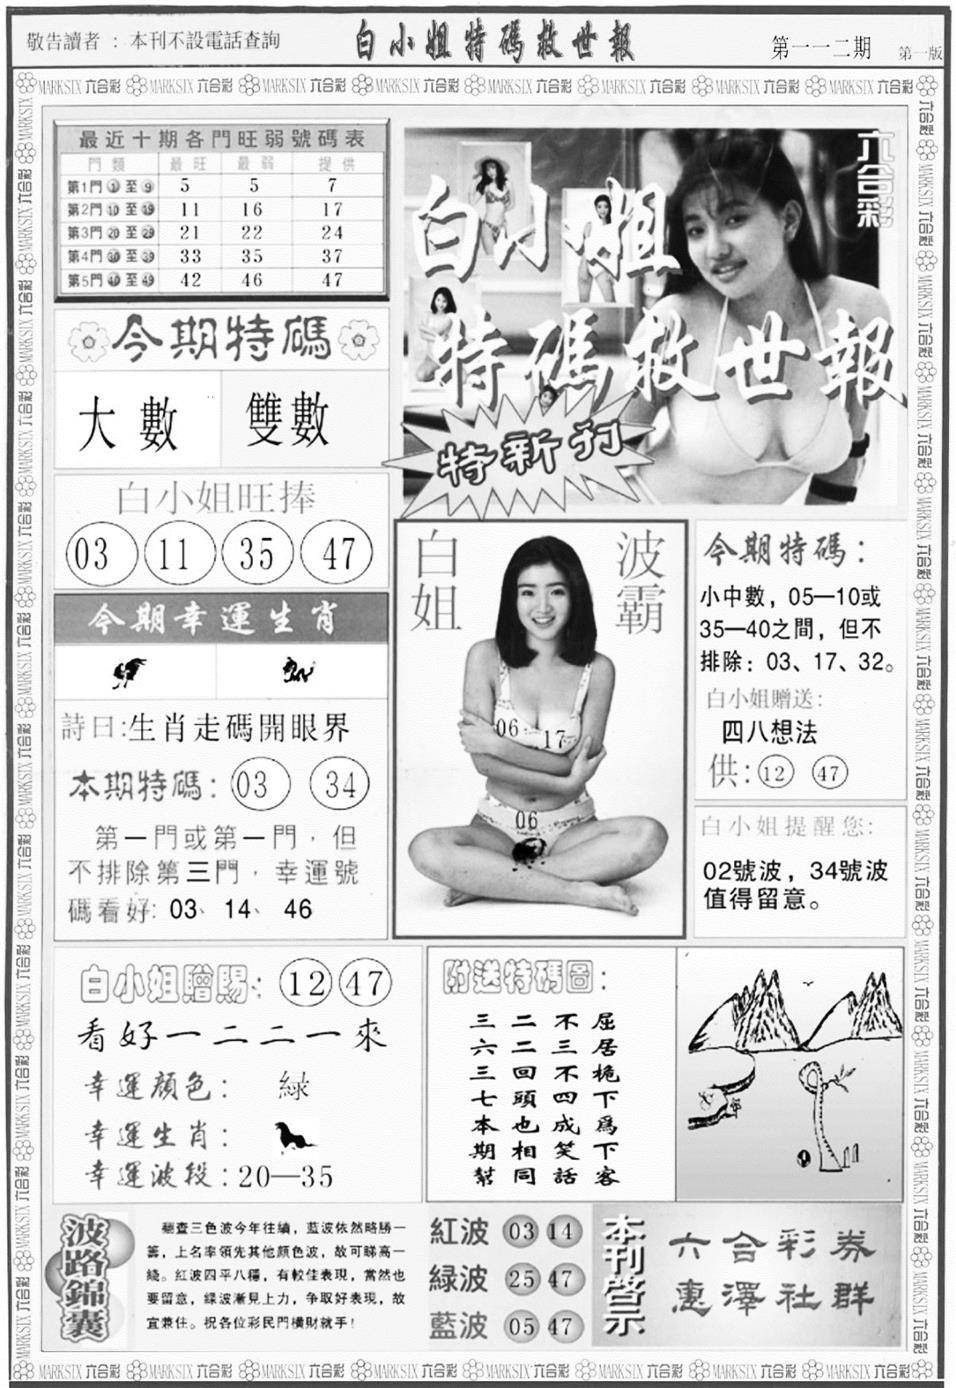 敬告讀者：本刊不設電話查詢
白小姐特碼救世報
第一一二期 第一版
MARKSIX 六合彩
最近十期各門旺弱號碼表
門類 最旺 最弱 提供
第1門①至⑨ 5 5 7
第2門⑩至⑲ 11 16 17
第3門⑳至㉙ 21 22 24
第4門㉚至㊴ 33 35 37
第5門㊵至㊾ 42 46 47
六合彩
白小姐
特碼救世報
特新刊
今期特碼
大數 雙數
白小姐旺捧
03 11 35 47
今期幸運生肖
詩曰:生肖走碼開眼界
本期特碼: 03 34
第一門或第一門，但
不排除第三門，幸運號
碼看好: 03、14、46
白姐
波霸
06 17
06
今期特碼：
小中數，05—10或
35—40之間，但不
排除：03、17、32。
白小姐贈送:
四八想法
供: 12 47
白小姐提醒您:
02號波，34號波
值得留意。
白小姐贈賜: 12 47
看好一二二一來
幸運顏色： 綠
幸運生肖：
幸運波段:20—35
附送特碼圖：
三二不屈
六二三居
三回不桅
七頭四下
本也成爲
期相笑下
幫同話客
波路錦囊
翻查三色波今年往績，藍波依然略勝一
籌，上名率領先其他顏色波，故可睇高一
綫。紅波四平八穩，有較佳表現，當然也
要留意，綠波漸見上力，争取好表現，故
宜兼住。祝各位彩民門橫財就手！
紅波 03 14
緑波 25 47
藍波 05 47
本刊啓示
六合彩券
惠澤社群